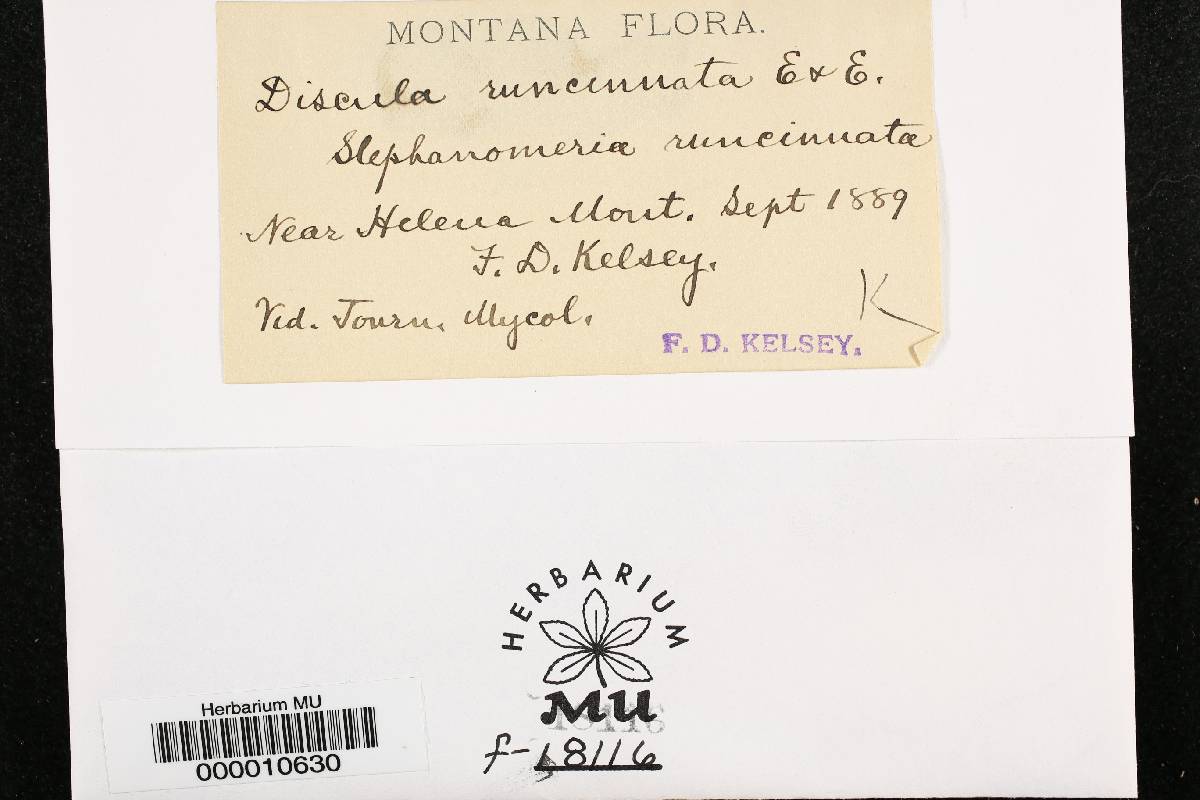 MONTANA FLORA.
Discula runcinnata E & E.
Stephanomeria runcinnata
Near Helena Mont. Sept 1889
F. D. Kelsey.
Vid. Journ. Mycol.
K
F. D. KELSEY.
HERBARIUM
MU
18116
f-18116
Herbarium MU
000010630